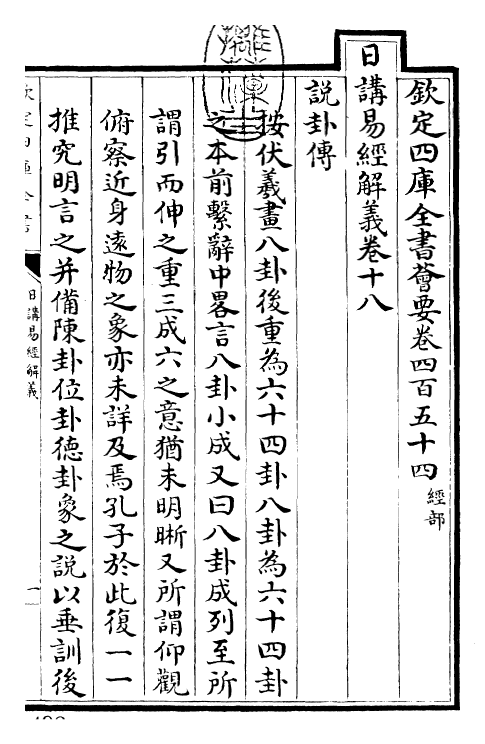 欽定四庫全書薈要卷四百五十四 經部
日講易經解義卷十八
說卦傳
按伏羲畫八卦後重為六十四卦八卦為六十四卦
之本前繫辭中畧言八卦小成又曰八卦成列至所
謂引而伸之重三成六之意猶未明晰又所謂仰觀
俯察近身遠物之象亦未詳及焉孔子於此復一一
推究明言之并備陳卦位卦德卦象之說以垂訓後
日講易經解義
一